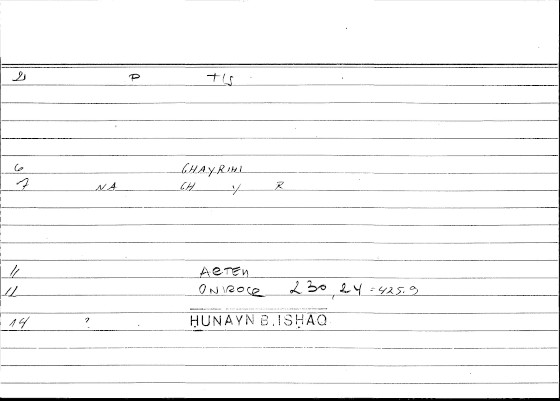 2 P
6 GHAYRIHI
7 NA GH Y R
11 ARTEM
12 ONIROCR 230,24=425.9
14 ? ḤUNAYN B. ISḤAQ